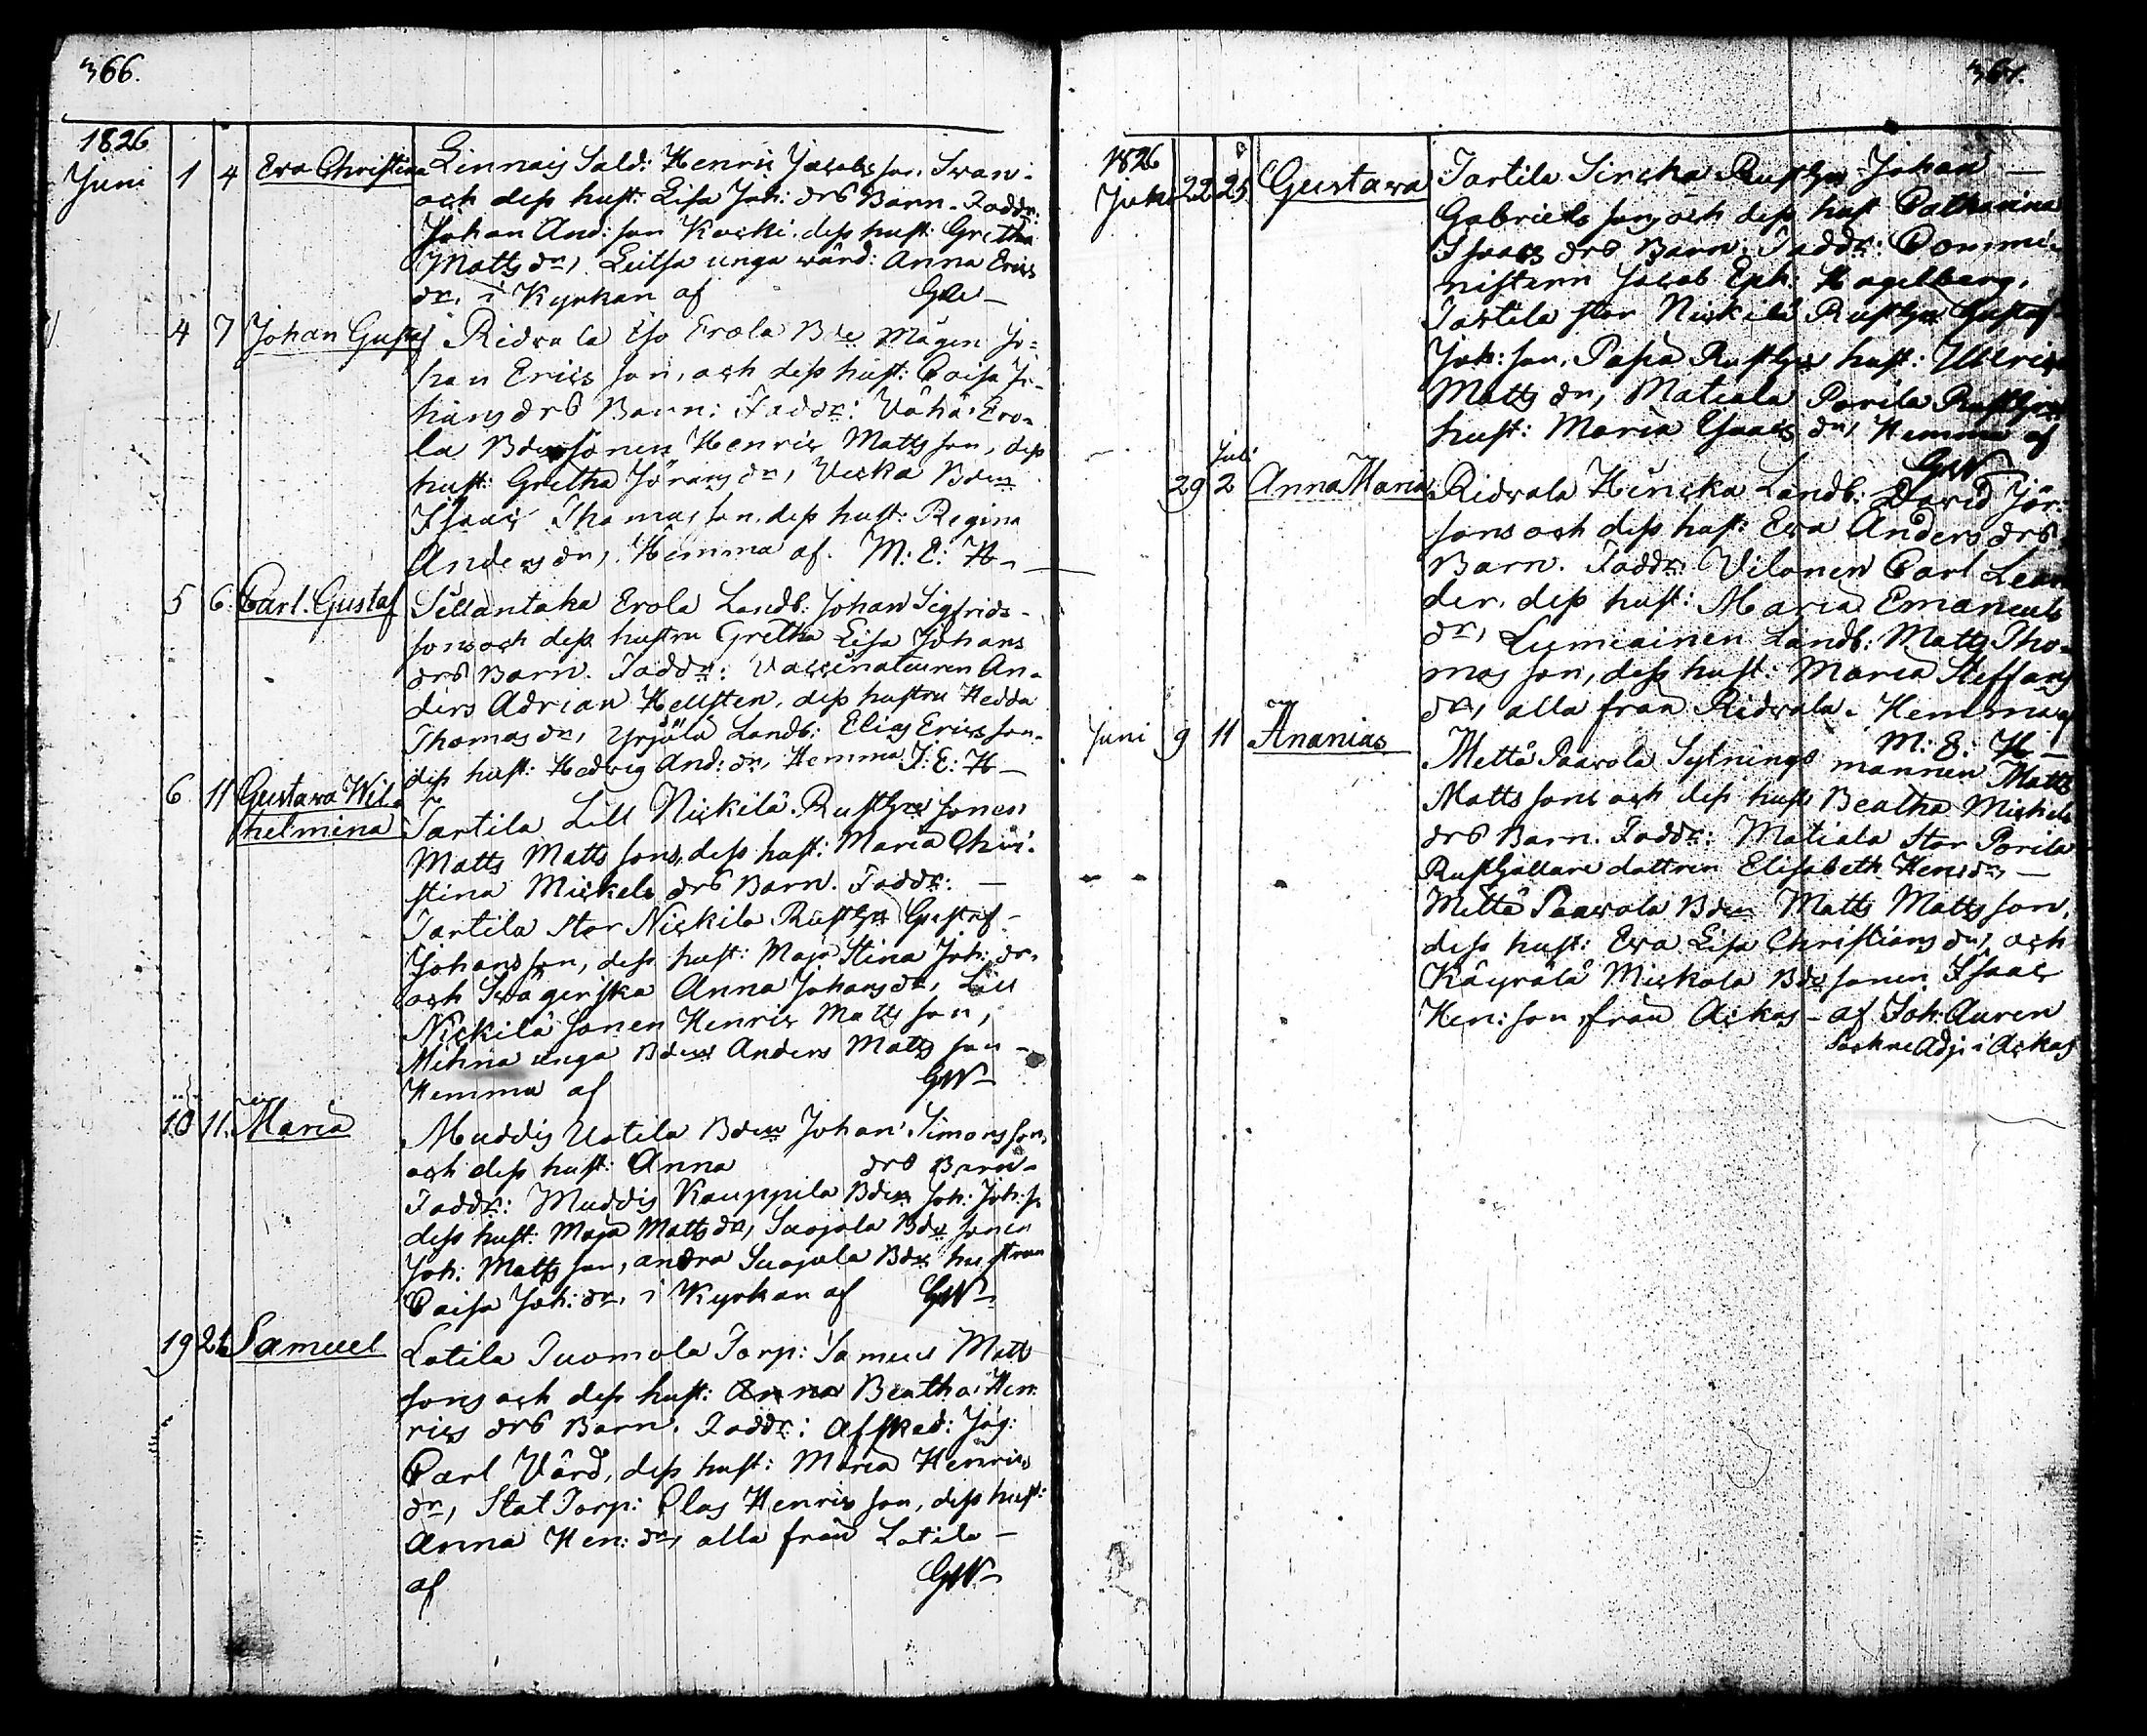 366.
1826
Juni 1 4 Eva Christina Linnais Sold: Henric Jacobs son Svan
och dess hust: Lisa Joh: drs Barn. Faddr:
Johan And: son Koski, dess hust: Gretha
Matts dr, Leitsa unga värd: Anna Erics
dr, i Kyrkan af GW
4 7 Johan Gustaf Ridvala Iso Erola Bde Mågen Jo=
han Erics son, och dess hust: Caisa Jo-
hans drs Barn: Faddr: Vähä Ero-
la Bdesonen Henric Matts son, dess
hust: Gretha Jörans dr, Uska Bden
Isaac Thomas son, dess hust: Regina
Anders dr, Hemma af. M: E: H
5 6. Carl Gustaf Sillantaka Erola Landb: Johan Sigfrids-
sons och dess hustru Gretha Lisa Johans
drs Barn. Faddr: Vaccinateuren An-
ders Adrian Hellsten, dess hustru Hedda
Thomas dr, Yrjölä Landb: Elias Erics son
dess hust: Hedvig And: dr, Hemma J: E: H
6 11 Gustava Wil-
helmina Tartila Lill Nickilä Rusth. sonen
Matts Matts sons, dess hust: Maria Chri-
stina Mickels drs Barn. Faddr:
Tartila Stor Nickilä Rusth. Gustaf
Johans son, dess hust: Maja Stina Joh: dr,
och Svägerska Anna Johans dr, Lill
Nickilä sonen Henric Matts son,
Mihna unga Bden Anders Matts son
Hemma af GW
10 11. Maria Muddis Uotila Bden Johan Simons son,
och dess hust: Anna drs Barn
Faddr: Muddis Kauppila Bden Joh: Joh: s.
dess hust: Maja Matts dr, Suojala Bde sonen
Joh: Matts son, andra Suojala Bde hustrun
Caisa Joh: dr, i Kyrkan af GW
19 21 Samuel Lotila Tuomola Torp: Samuel Matts
sons och dess hust: Anna Beatha Hen-
rics drs Barn. Faddr: Afsked: Jäg:
Carl Vård, dess hust: Maria Henrics
dr, Stat Torp: Clas Henrics son, dess hust:
Anna Hen: dr, alla från Lotila
af GW
1826
Juni 22 25. Gustava Tartila Sircka Rusth. Johan
Gabriels sons och dess hust Catharina
Isaacs drs Barn. Faddr: Commi-
nistern Jacob Eph: Hagelberg.
Tartila stor Nickilä Rusth. Gustaf
Joh: son, Papa Rusth. hust: Ulric
Matts dr, Matiala Porila Rusth.
hust: Maria Isaacs dr, Hemma af
GW
Juli
29 2 Anna Maria Ridvala Hincka Landb: David Jör:
sons och dess hust: Eva Anders drs
Barn. Faddr: Vilonen Carl Lean
der, dess hust: Maria Emanuels
dr, Lumiainen Landb: Matts Tho-
mas son, dess hust: Maria Steffans
dr, alla från Ridvala. Hemma af
M: E: H
Juni 9 11 Ananias Mettä Paavola Sytnings mannen Matts
Matts sons och dess hust Beatha Michels
drs Barn. Faddr: Matiala Stor Porila
Rusthållare dottren Elisabeth Hen: dr,
Mettä Paavola Bden Matts Matts son,
dess hust: Eva Lisa Christians dr, och
Käyrälä Mickola Bde sonen Isaac
Hen: son, från Ackas - af Joh: Auren
Sockne Adj: i Ackas